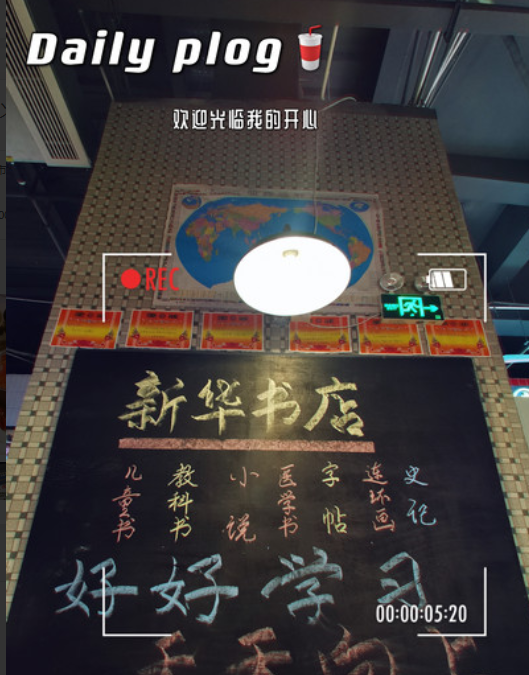 Daily plog
欢迎光临我的开心
REC
新华书店
儿童书 教科书 小说 医学书 字帖 连环画 史记
好好学习
00:00:05:20
天天向上